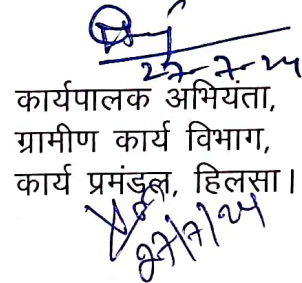 27-7-24
कार्यपालक अभियंता,
ग्रामीण कार्य विभाग,
कार्य प्रमंडल, हिलसा।
27/7/24